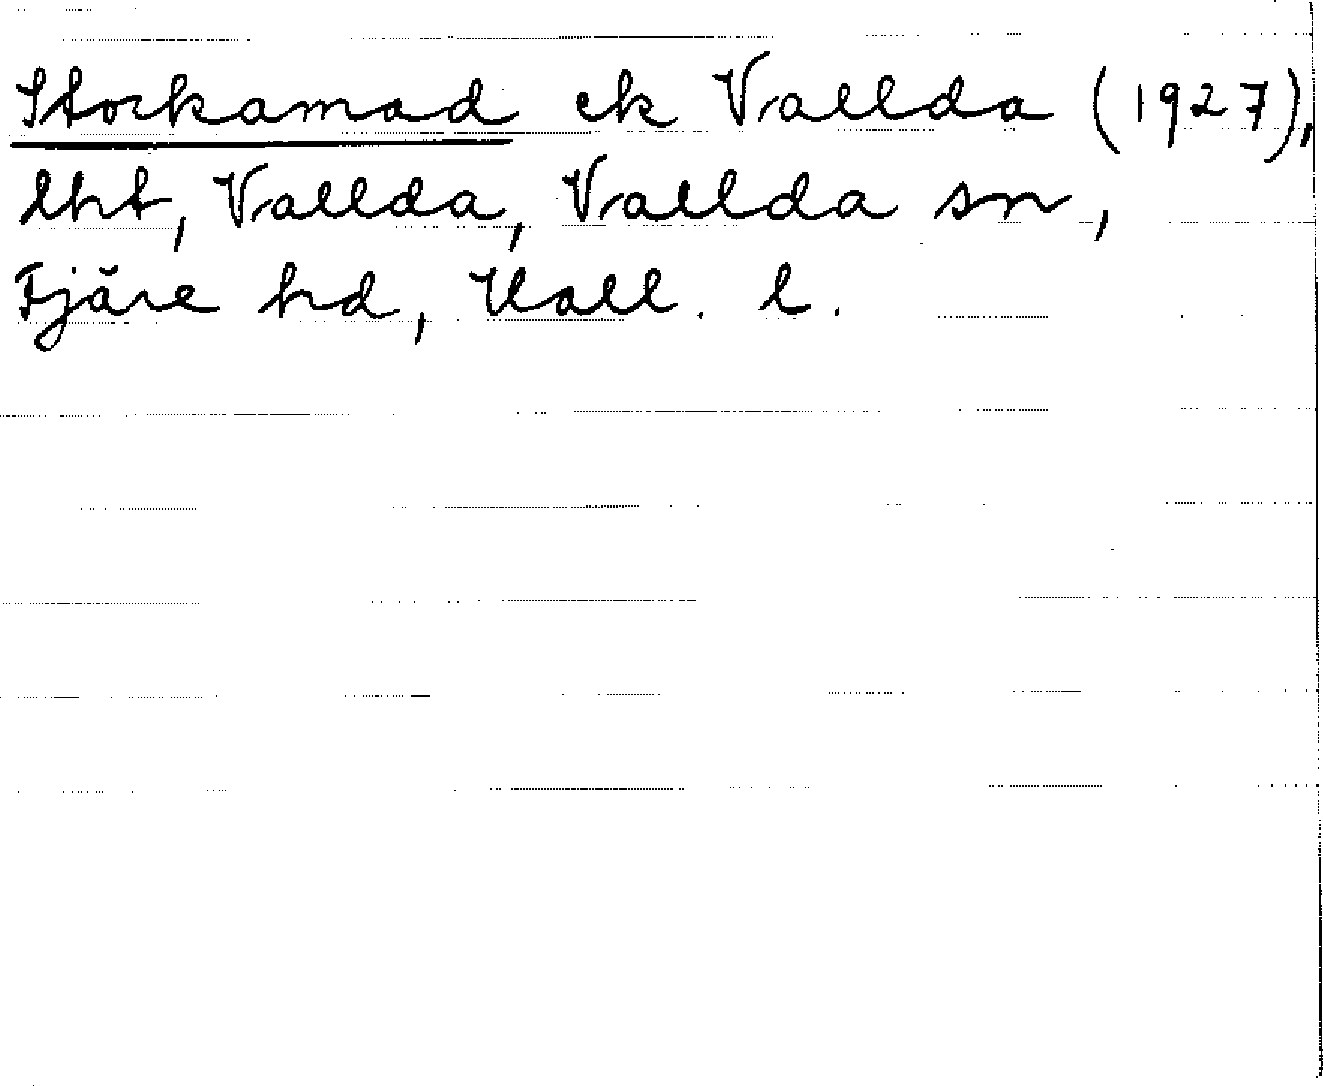 Stockamad ek Vallda (1927),
lht, Vallda, Vallda sn,
Fjäre hd, Hall. l.